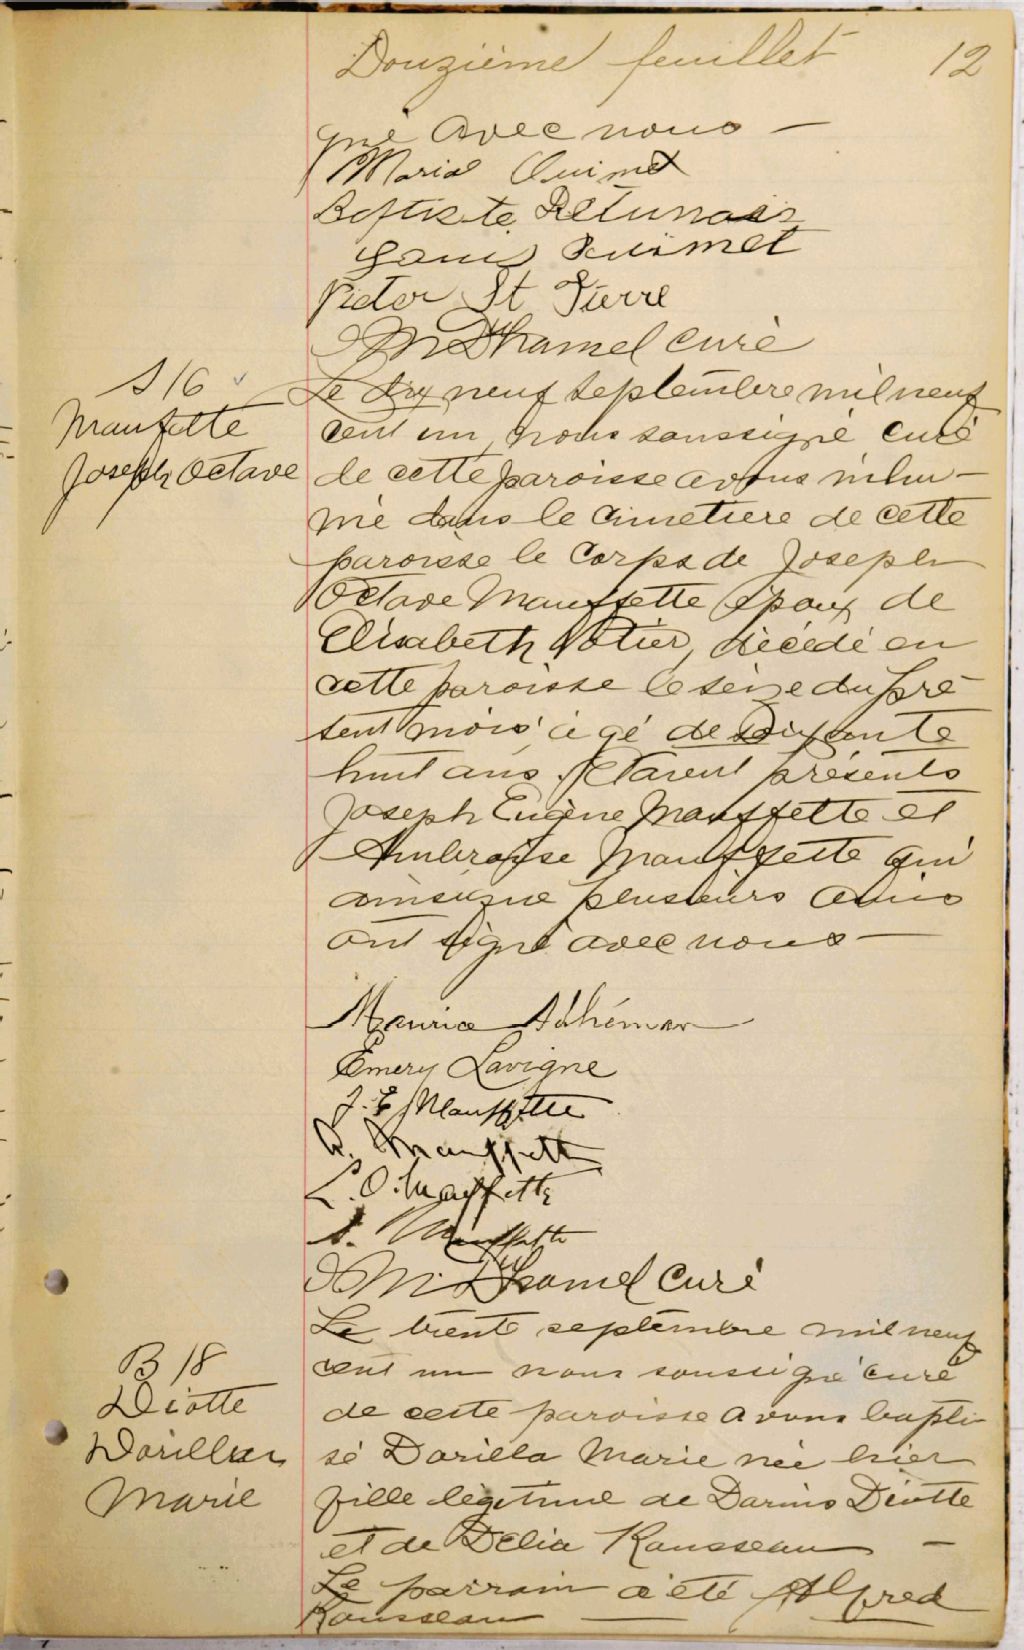 Douzième feuillet 12
gné avec nous —
Maria Ouimet
Baptiste
Louis Ouimet
Victor St Pierre
Duhamel curé
S 16
Mauffette
Joseph Octave
Le dix neuf septembre mil neuf
cent un, nous soussigné curé
de cette paroisse avons inhu-
mé dans le cimetière de cette
paroisse le corps de Joseph
Octave Mauffette époux de
Elisabeth Potier, décédé en
cette paroisse le seize du pré
sent mois agé de soixante
huit ans. Etaient présents
Joseph Eugène Mauffette et
Ambroise Mauffette qui
ainsique plusieurs amis
ont signé avec nous —
Maurice Adhémar
Emery Lavigne
J. E Mauffette
A. Mauffette
L. O. Mauffette
Mauffette
M. Duhamel curé
B 18
Diotte
Dorilla
Marie
Le trente septembre mil neuf
cent un nous soussigné curé
de cette paroisse avons bapti
sé Dorilla Marie née hier
fille légitime de Darius Diotte
et de Délia Rousseau —
Le parrain a été Alfred
Rousseau